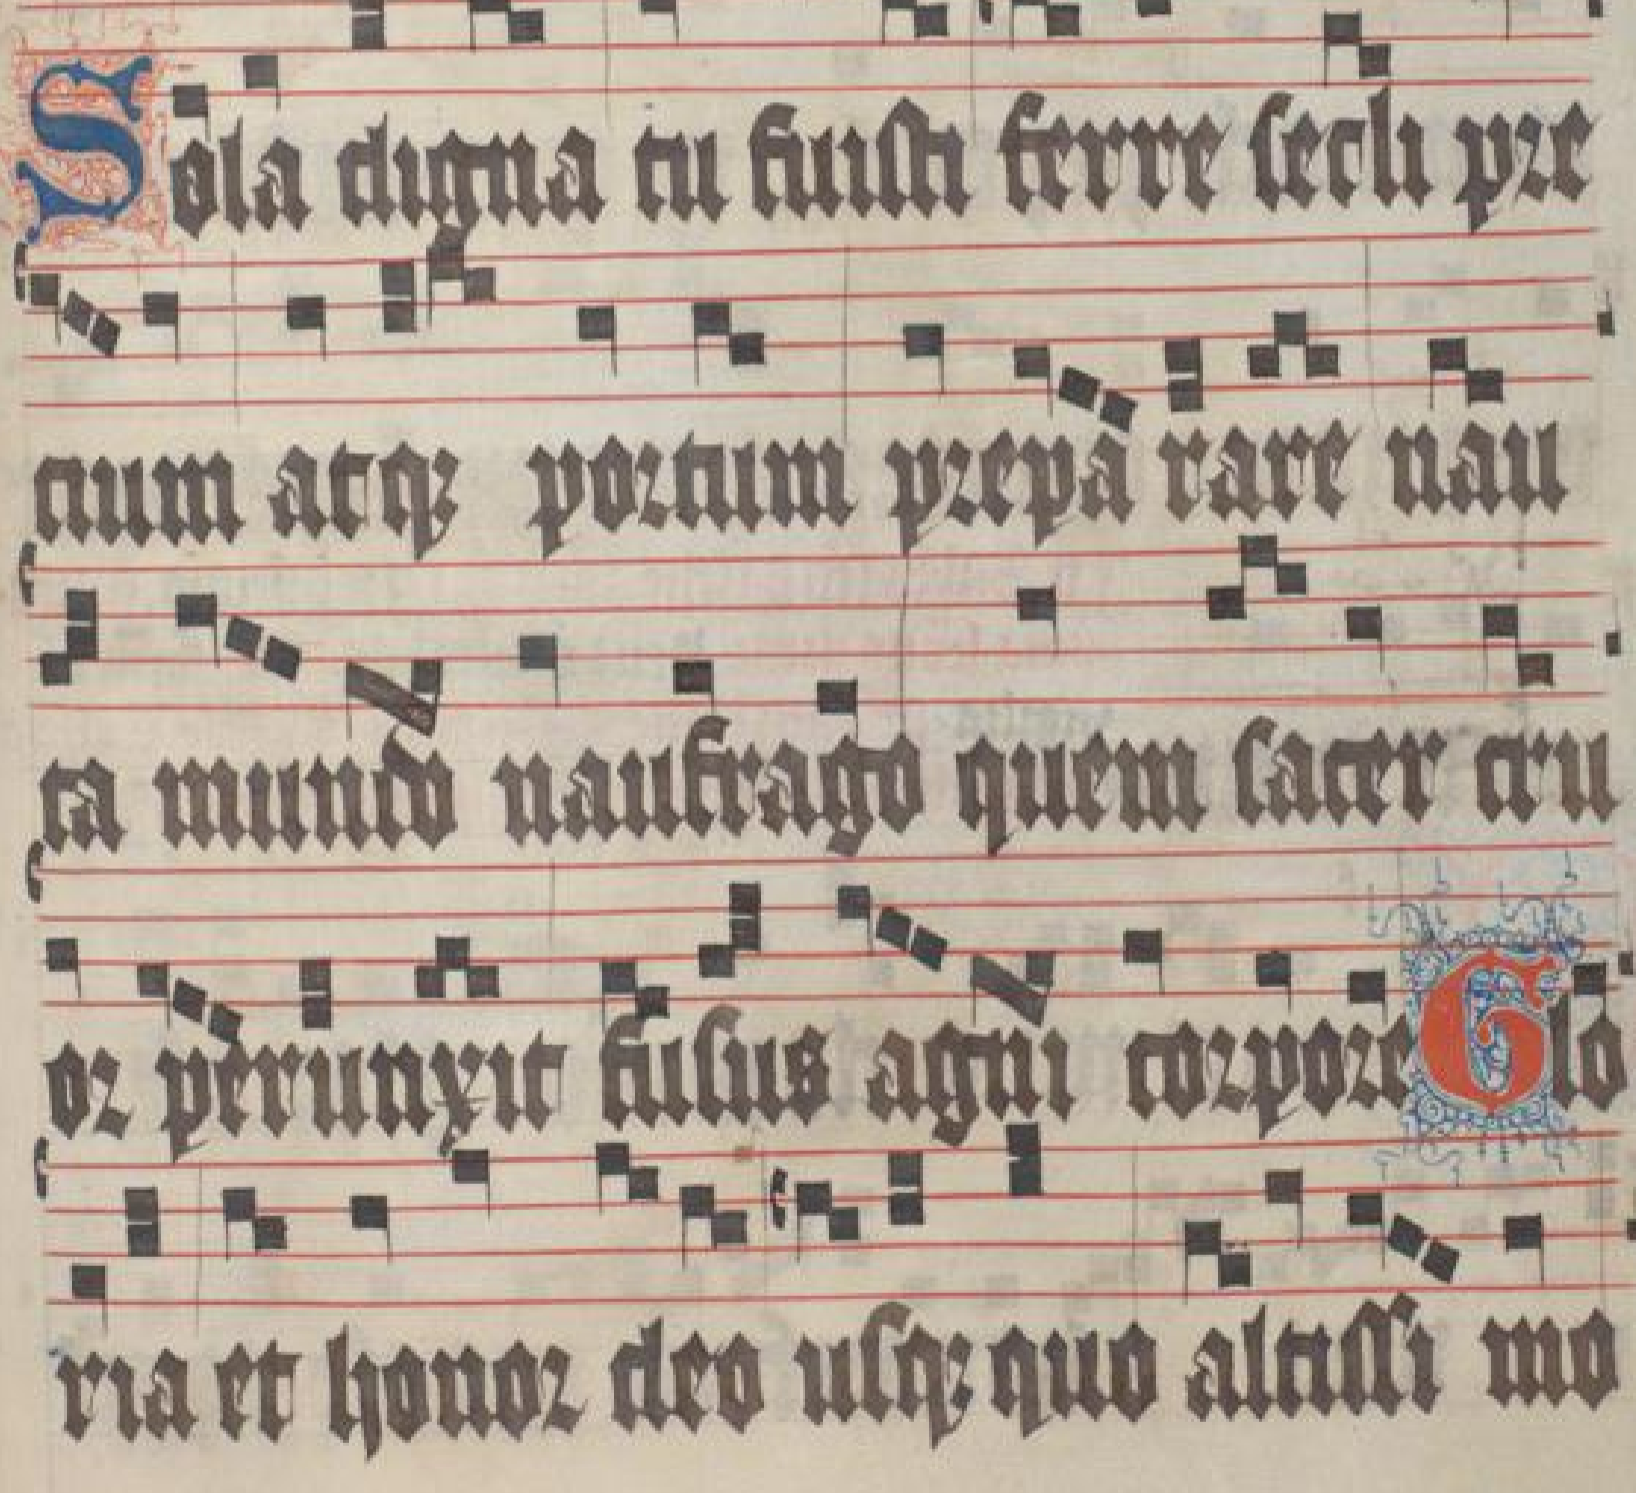 Sola digna tu fuisti ferre secli pre
cium atqꝫ portum prepa rare nau
ta mundo naufrago quem sacer cru
or perunxit fusus agni corpore Glo
ria et honor deo usqꝫ quo altissi mo